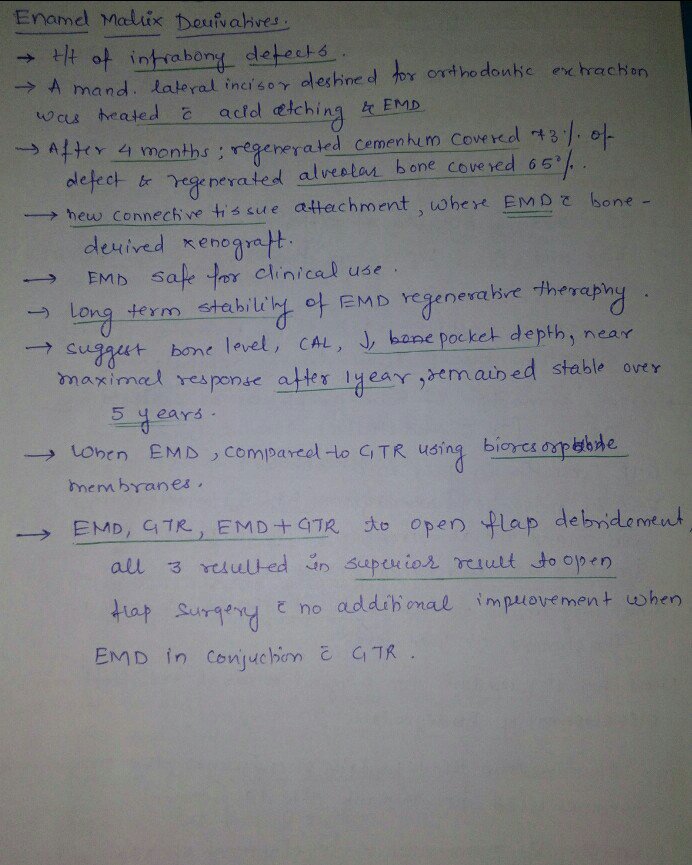 Enamel Matrix Derivatives.
→ t/t of infrabony defects.
→ A mand. lateral incisor destined for orthodontic extraction
was treated c̄ acid etching & EMD
→ After 4 months; regenerated cementum covered 73% of
defect & regenerated alveolar bone covered 65%.
→ new connective tissue attachment, where EMD c̄ bone-
derived xenograft.
→ EMD safe for clinical use.
→ long term stability of EMD regenerative theraphy.
→ suggest bone level, CAL, ↓ bone pocket depth, near
maximal response after 1year, remained stable over
5 years.
→ When EMD, compared to GTR using bioresorbable
membranes.
→ EMD, GTR, EMD + GTR to open flap debridement,
all 3 resulted in superior result to open
flap surgery c̄ no additional improvement when
EMD in conjuction c̄ GTR.